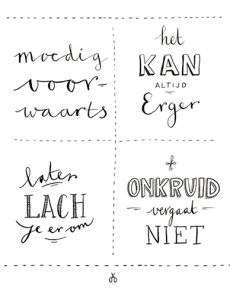 moedig
voor-
waarts
het
KAN
ALTIJD
Erger
Later
LACH
Je er om
ONKRUID
vergaat
NIET